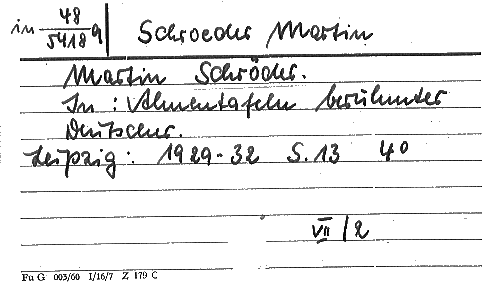 in 48/5418q Schroeder Martin
Martin Schröder.
In: Ahnentafeln berühmter
Deutscher.
Leipzig: 1929-32 S. 13 4°
VII/2
Fu G 003/60 I/16/7 Z 179 C